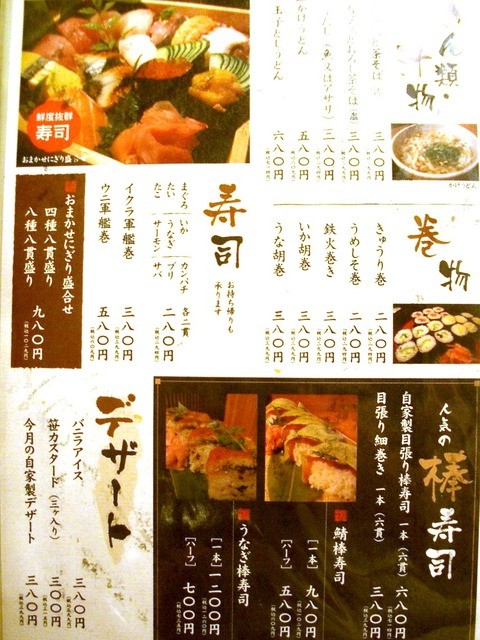 めん類・
汁物
茶そば
玉子とじうどん
三八〇円
三八〇円
三八〇円
五八〇円
六八〇円
かけうどん
鮮度抜群
寿司
おまかせにぎり盛
巻物
きゅうり巻 二八〇円
うめしそ巻 二八〇円
鉄火巻き 三八〇円
いか胡巻 三八〇円
うな胡巻 三八〇円
寿司
お持ち帰りも
承ります
まぐろ いか カンパチ
たい うなぎ ブリ
たこ サーモン サバ
各二貫
二八〇円
イクラ軍艦巻 三八〇円
ウニ軍艦巻 五八〇円
おまかせにぎり盛合せ
四種八貫盛り
八種八貫盛り 九八〇円
人気の
棒寿司
自家製目張り棒寿司 一本(六貫) 六八〇円
目張り細巻き 一本(六貫) 三八〇円
鯖棒寿司
[一本] 九八〇円
[ハーフ] 五八〇円
うなぎ棒寿司
[一本] 一二〇〇円
[ハーフ] 七〇〇円
デザート
バニラアイス 三八〇円
笹カスタード(三ヶ入り) 三〇〇円
今月の自家製デザート 三八〇円